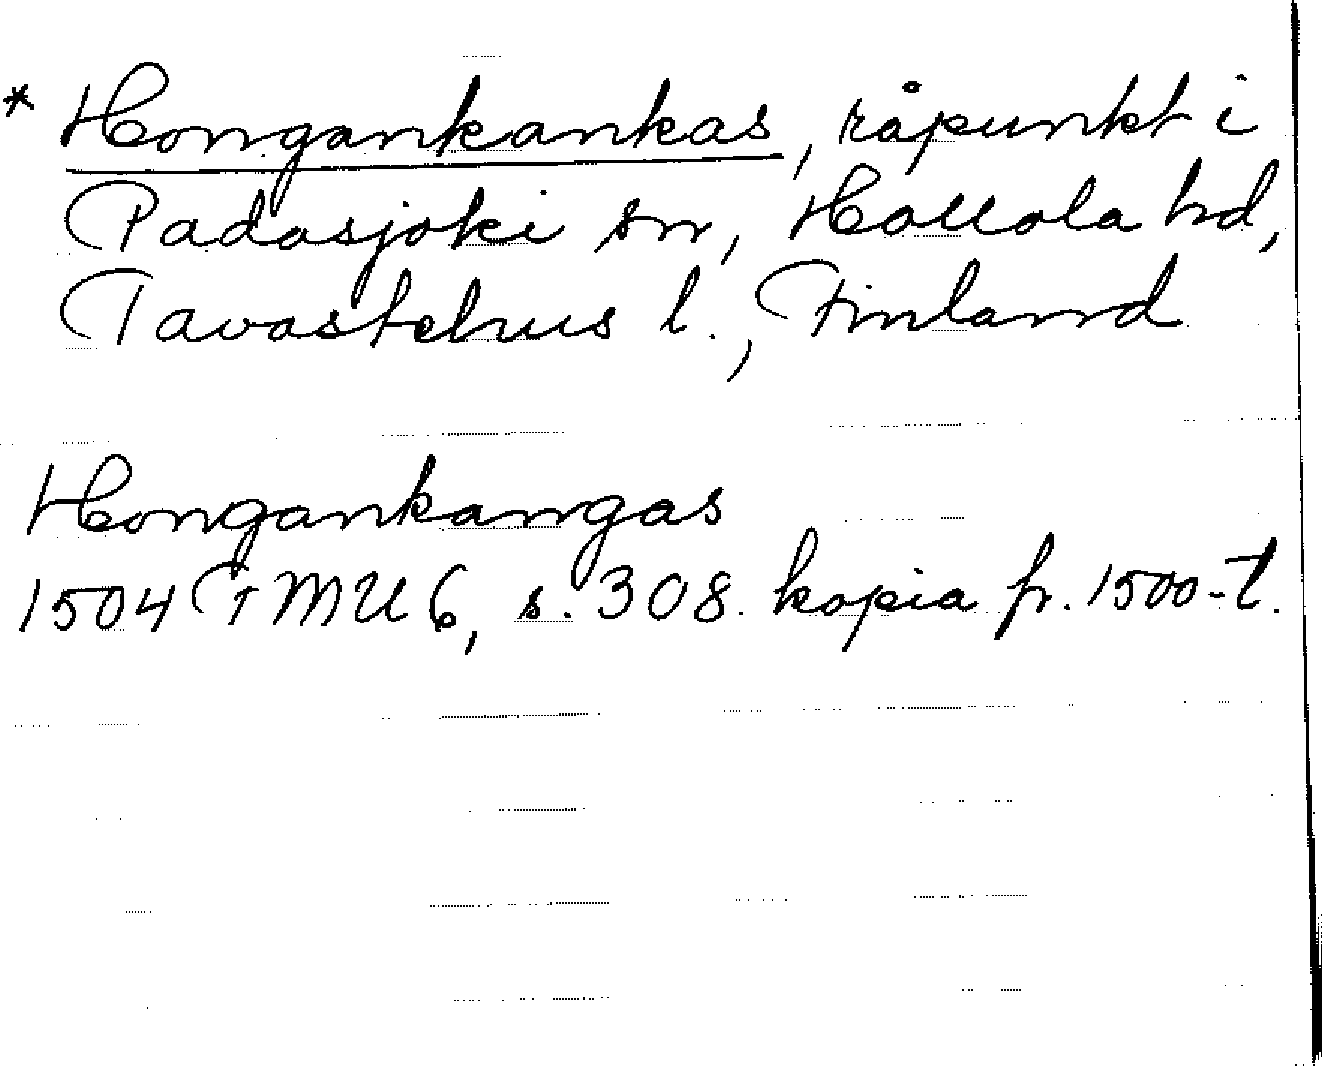 * Hongankankas, råpunkt i
Padasjoki sn, Hollola hd,
Tavastehus l., Finland
Hongankangas
1504 FMU 6, s. 308. kopia fr. 1500-t.